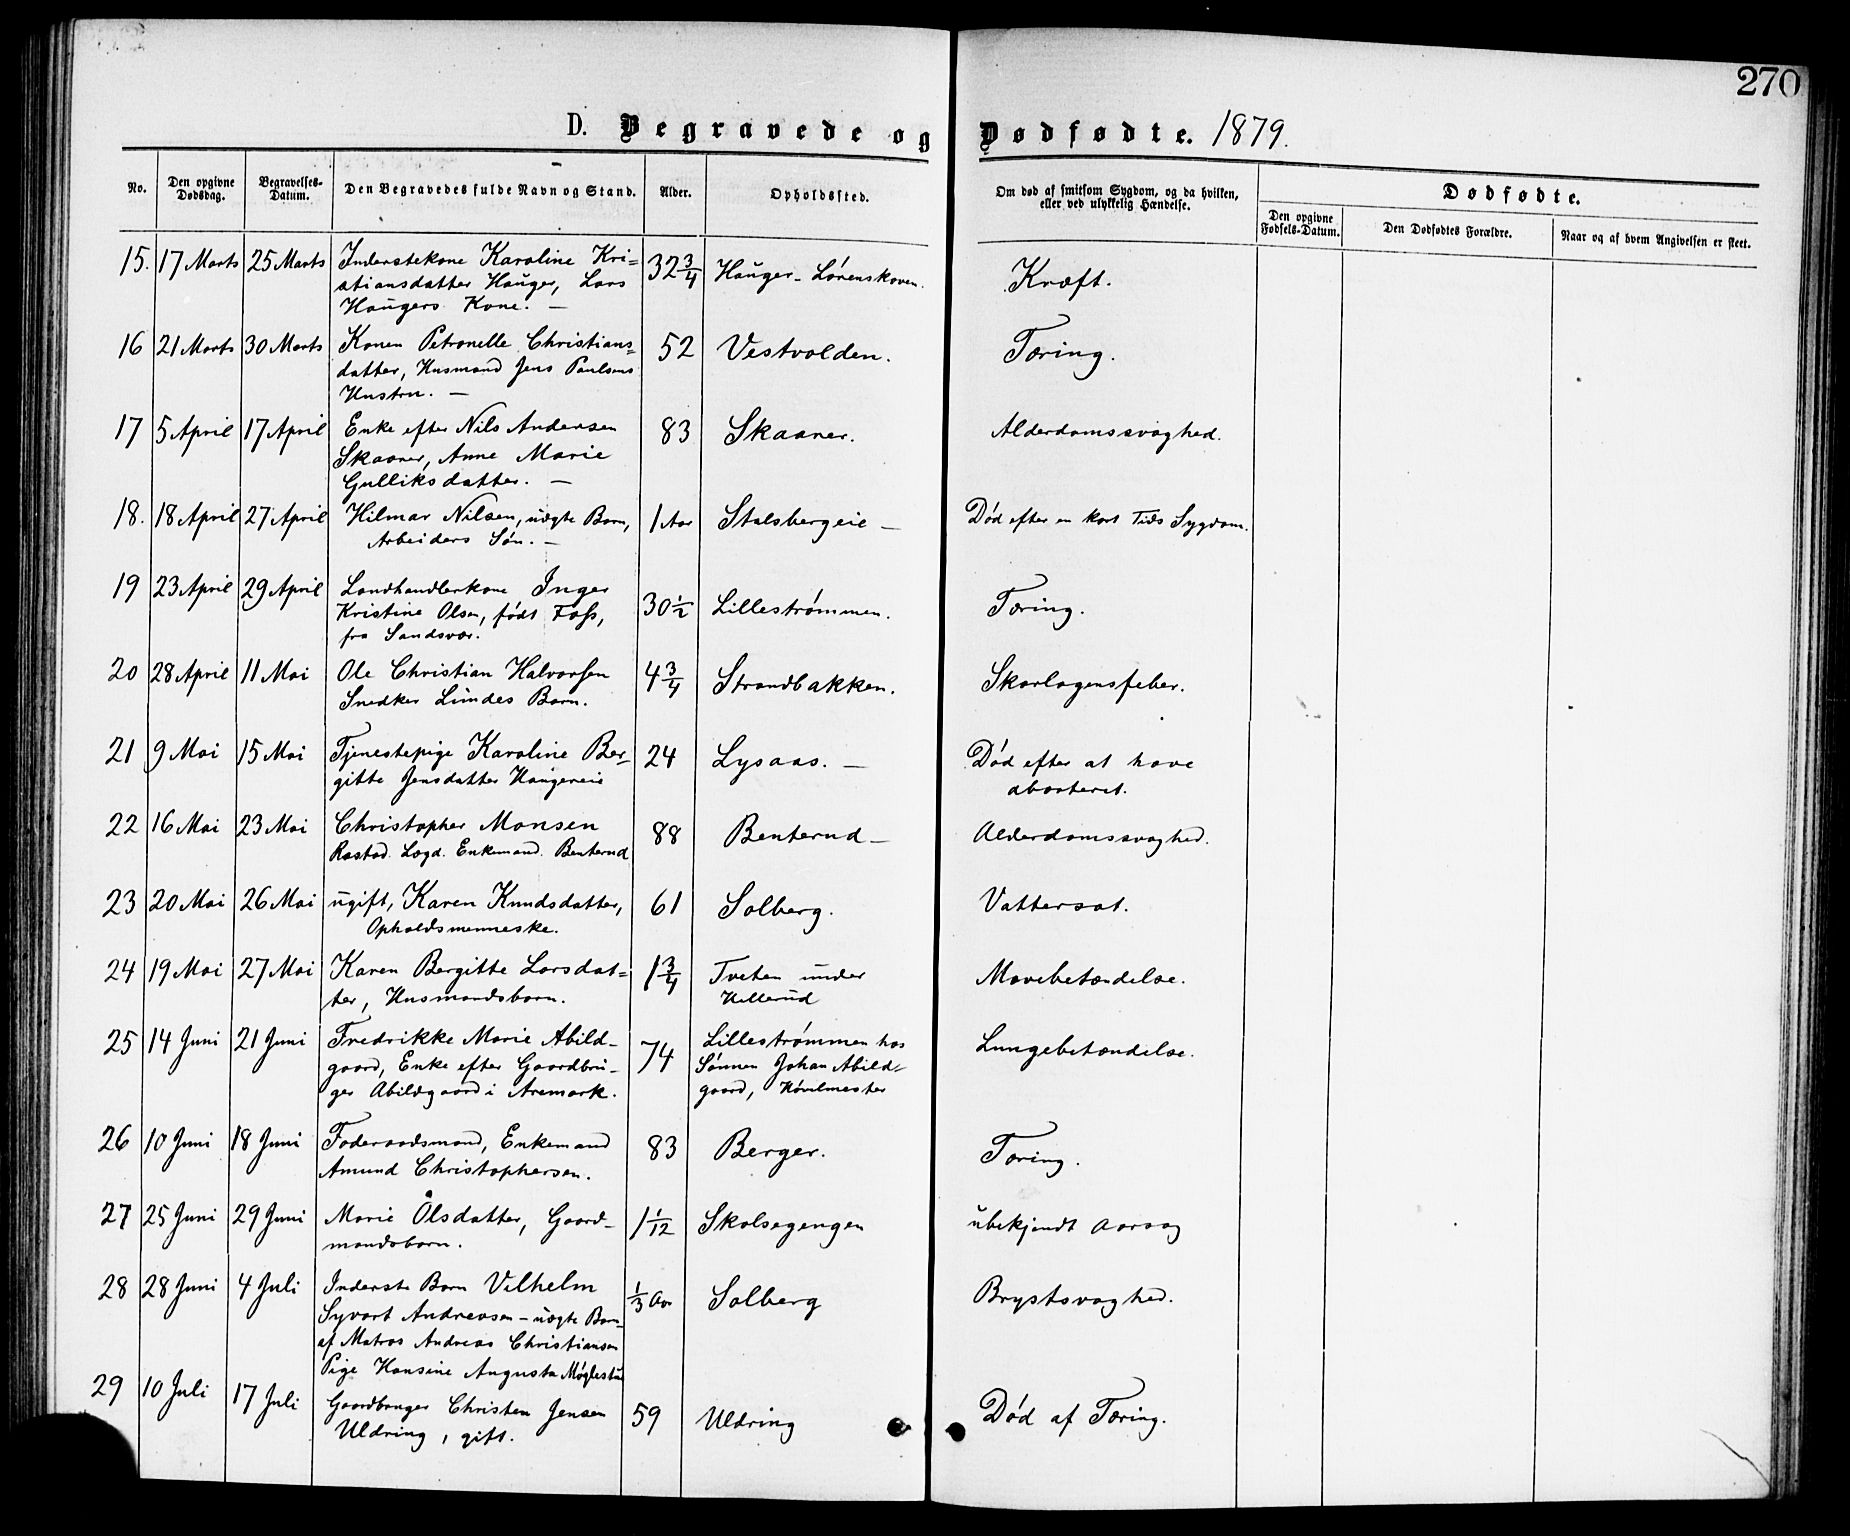 270
D. Begravede og Dødfødte. 1879.
No. Den opgivne Dødsdag. Begravelses-Datum. Den Begravedes fulde Navn og Stand. Alder. Opholdssted. Om død af smitsom Sygdom, og da hvilken, eller ved ulykkelig Hændelse. Dødfødte.
Den opgivne Fødsels-Datum. Den Dødfødtes Forældre. Naar og af hvem Angivelsen er skeet.
15. 17 Marts 25 Marts Inderstekone Karoline Kri- 32 3/4 Hauger - Lørenskoven. Kræft.
stiansdatter Hauger, Lars
Haugers Kone. —
16 21 Marts 30 Marts Konen Petronelle Christians= 52 Vestvolden. Tæring.
datter, Husmand Jens Paulsens
Hustru. —
17 5 April 17 April Enke efter Nils Andersen 83 Skaarer. Alderdomssvaghed.
Skaarer, Anne Marie
Gulliksdatter. —
18. 18 April 27 April Hilmar Nilsen, uægte Barn, 1 Aar Stalsbergeie — Død efter en kort Tids Sygdom.
Arbeiders Søn. —
19 23 April 29 April Landhandlerkone Inger 30 1/2 Lillestrømmen. Tæring.
Kristine Olsen, født Foss,
fra Sandsvær.
20 28 April 11 Mai Ole Christian Halvorsen 4 3/4 Strandbakken. Skarlagensfeber.
Snedker Lundes Barn.
21 9 Mai 15 Mai Tjenestepige Karoline Ber- 24 Lysaas. — Død efter at have
gitte Jensdatter Haugereie aborteret.
22 16 Mai 23 Mai Christopher Monsen 88 Benterud — Alderdomssvaghed.
Rastad. Lægd. Enkemand. Benterud
23 20 Mai 26 Mai ugift, Karen Knudsdatter, 61 Solberg. Vattersot.
Opholdsmenneske.
24 19 Mai 27 Mai Karen Bergitte Larsdat= 1 3/4 Tveten under Mavebetændelse.
ter, Husmandsbarn. Hellerud
25 14 Juni 21 Juni Fredrikke Marie Abild- 74 Lillestrømmen hos Lungebetændelse.
gaard, Enke efter Gaardbru- Sønnen Johan Abild-
ger Abildgaard i Aremark. gaard, Høvelmester
26 10 Juni 18 Juni Foderaadsmand, Enkemand 83 Berger. Tæring.
Amund Christophersen.
27 25 Juni 29 Juni Marie Olsdatter, Gaard- 1 1/12 Skalsegengen ubekjendt Aarsag
mandsbarn.
28 28 Juni 4 Juli Inderste Barn Vilhelm 1/3 Aar Solberg Brystsvaghed.
Syvart Andreasen - uægte Barn
af Matros Andreas Christiansen
Pige Hansine Augusta Møglestu
29 10 Juli 17 Juli Gaardbruger Christen Jensen 59 Uldring Død af Tæring.
Uldring, gift.